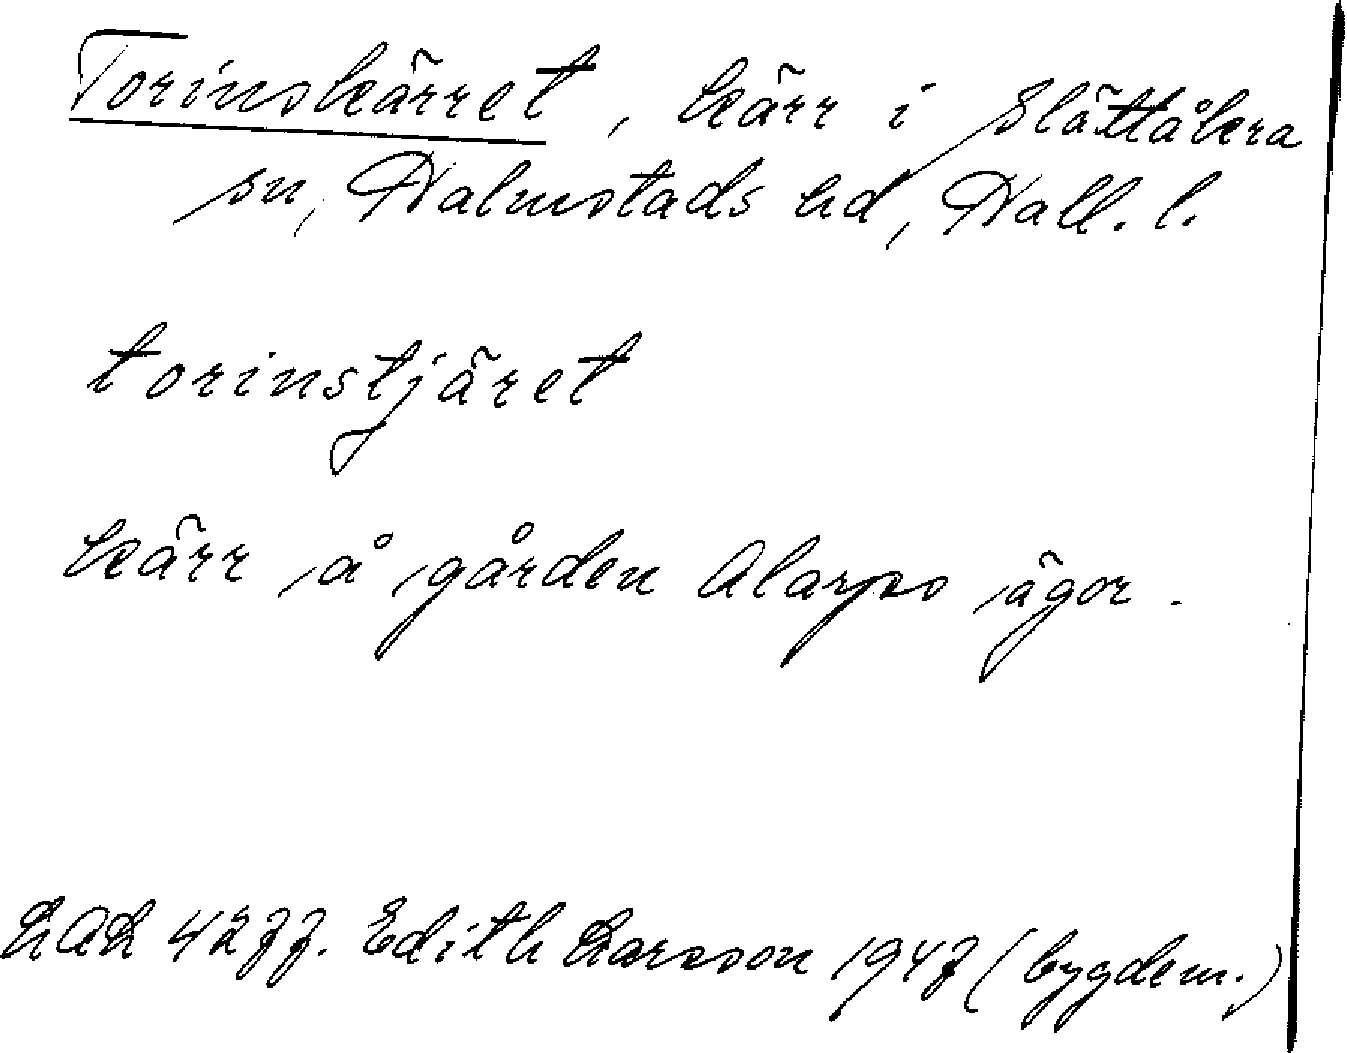 Torinskärret, kärr i Slättåkra
sn, Halmstads hd, Hall. l.
torinstjäret
kärr å gården Alarps ägor.
LAL 4277. Edith Larsson 1947 (bygdem.)